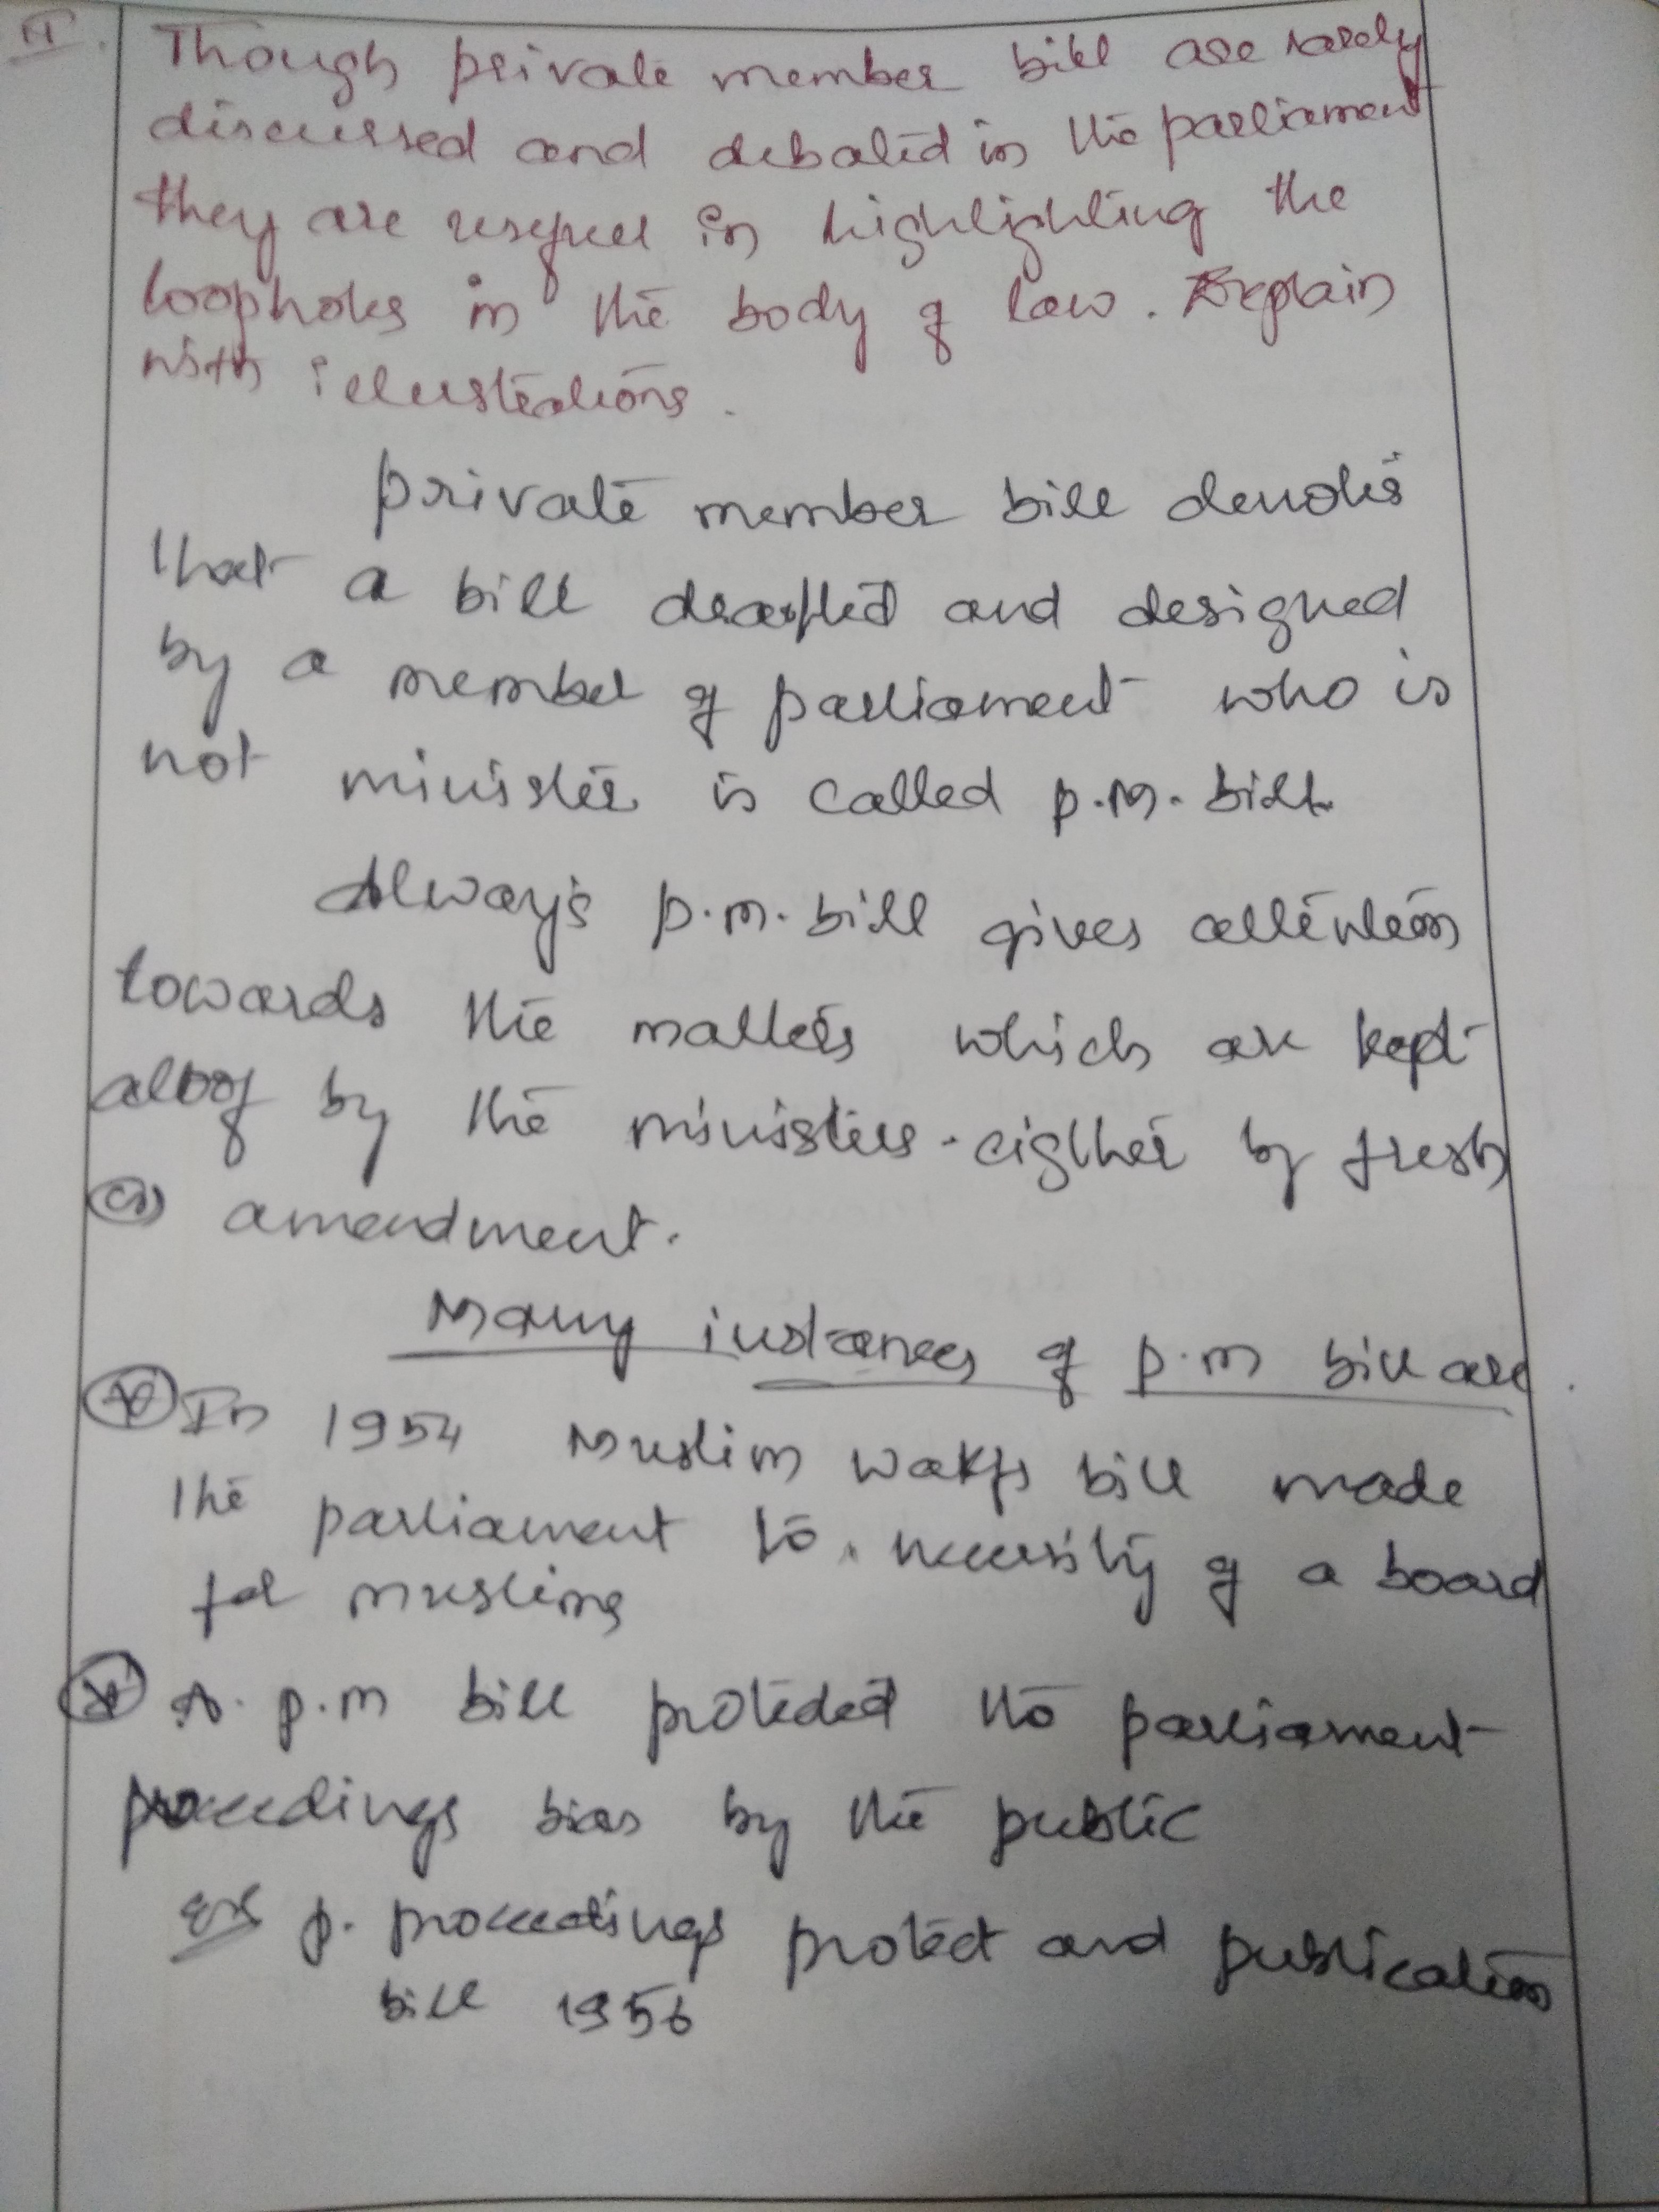 II.
Though private member bill are rarely
discussed and debated in the parliament
they are useful in highlighting the
loopholes in the body of law. Explain
with illustrations.
private member bill denotes
that a bill drafted and designed
by a member of parliament who is
not minister is called p.m. bill.
Always p.m. bill gives attention
towards the matters which are kept
aloof by the ministers. eigther by fresh
(or) amendment.
Many instances of p.m bill are.
In 1954 Muslim wakfs bill made
the parliament to necessity of a board
for muslims
A. p.m bill protected the parliament
proceedings bias by the public
Ex p. proceedings protect and publication
bill 1956